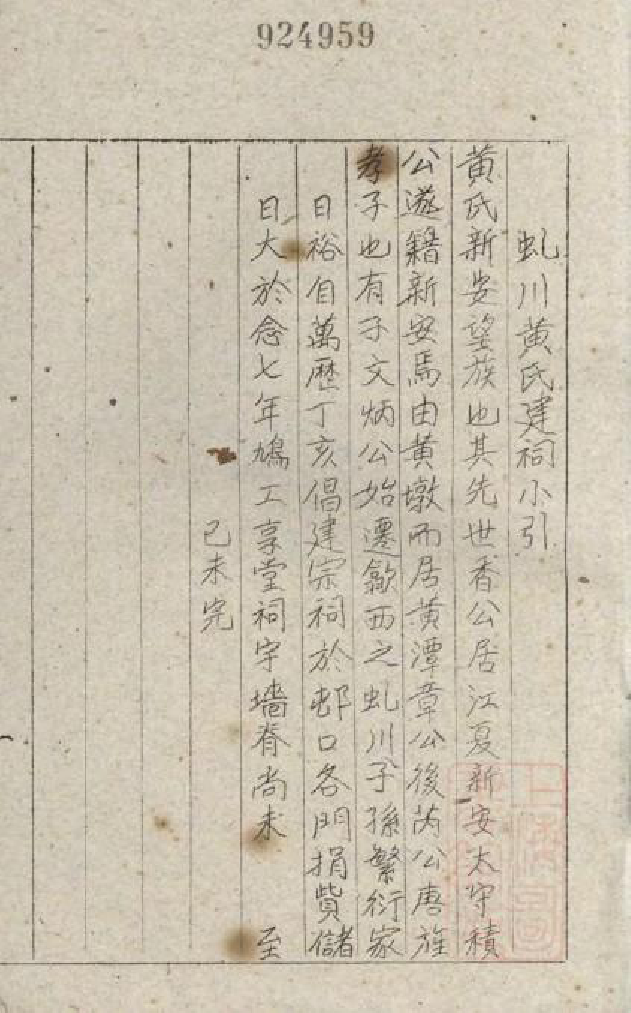 924959
虬川黄氏建祠小引
黄氏新安望族也其先世香公居江夏新安太守積
公遂籍新安焉由黄墩而居黄潭章公後芮公唐旌
孝子也有子文炳公始遷歙西之虬川子孫繁衍家
日裕自萬歷丁亥倡建宗祠於邨口各門捐貲儲
日大於念七年鳩工享堂祠宇墙脊尚未 至
己未完